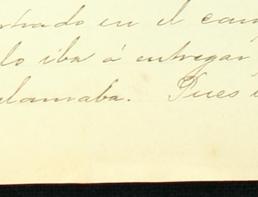 ntrado en el cam
lo iba á entregar
clamaba. Pues